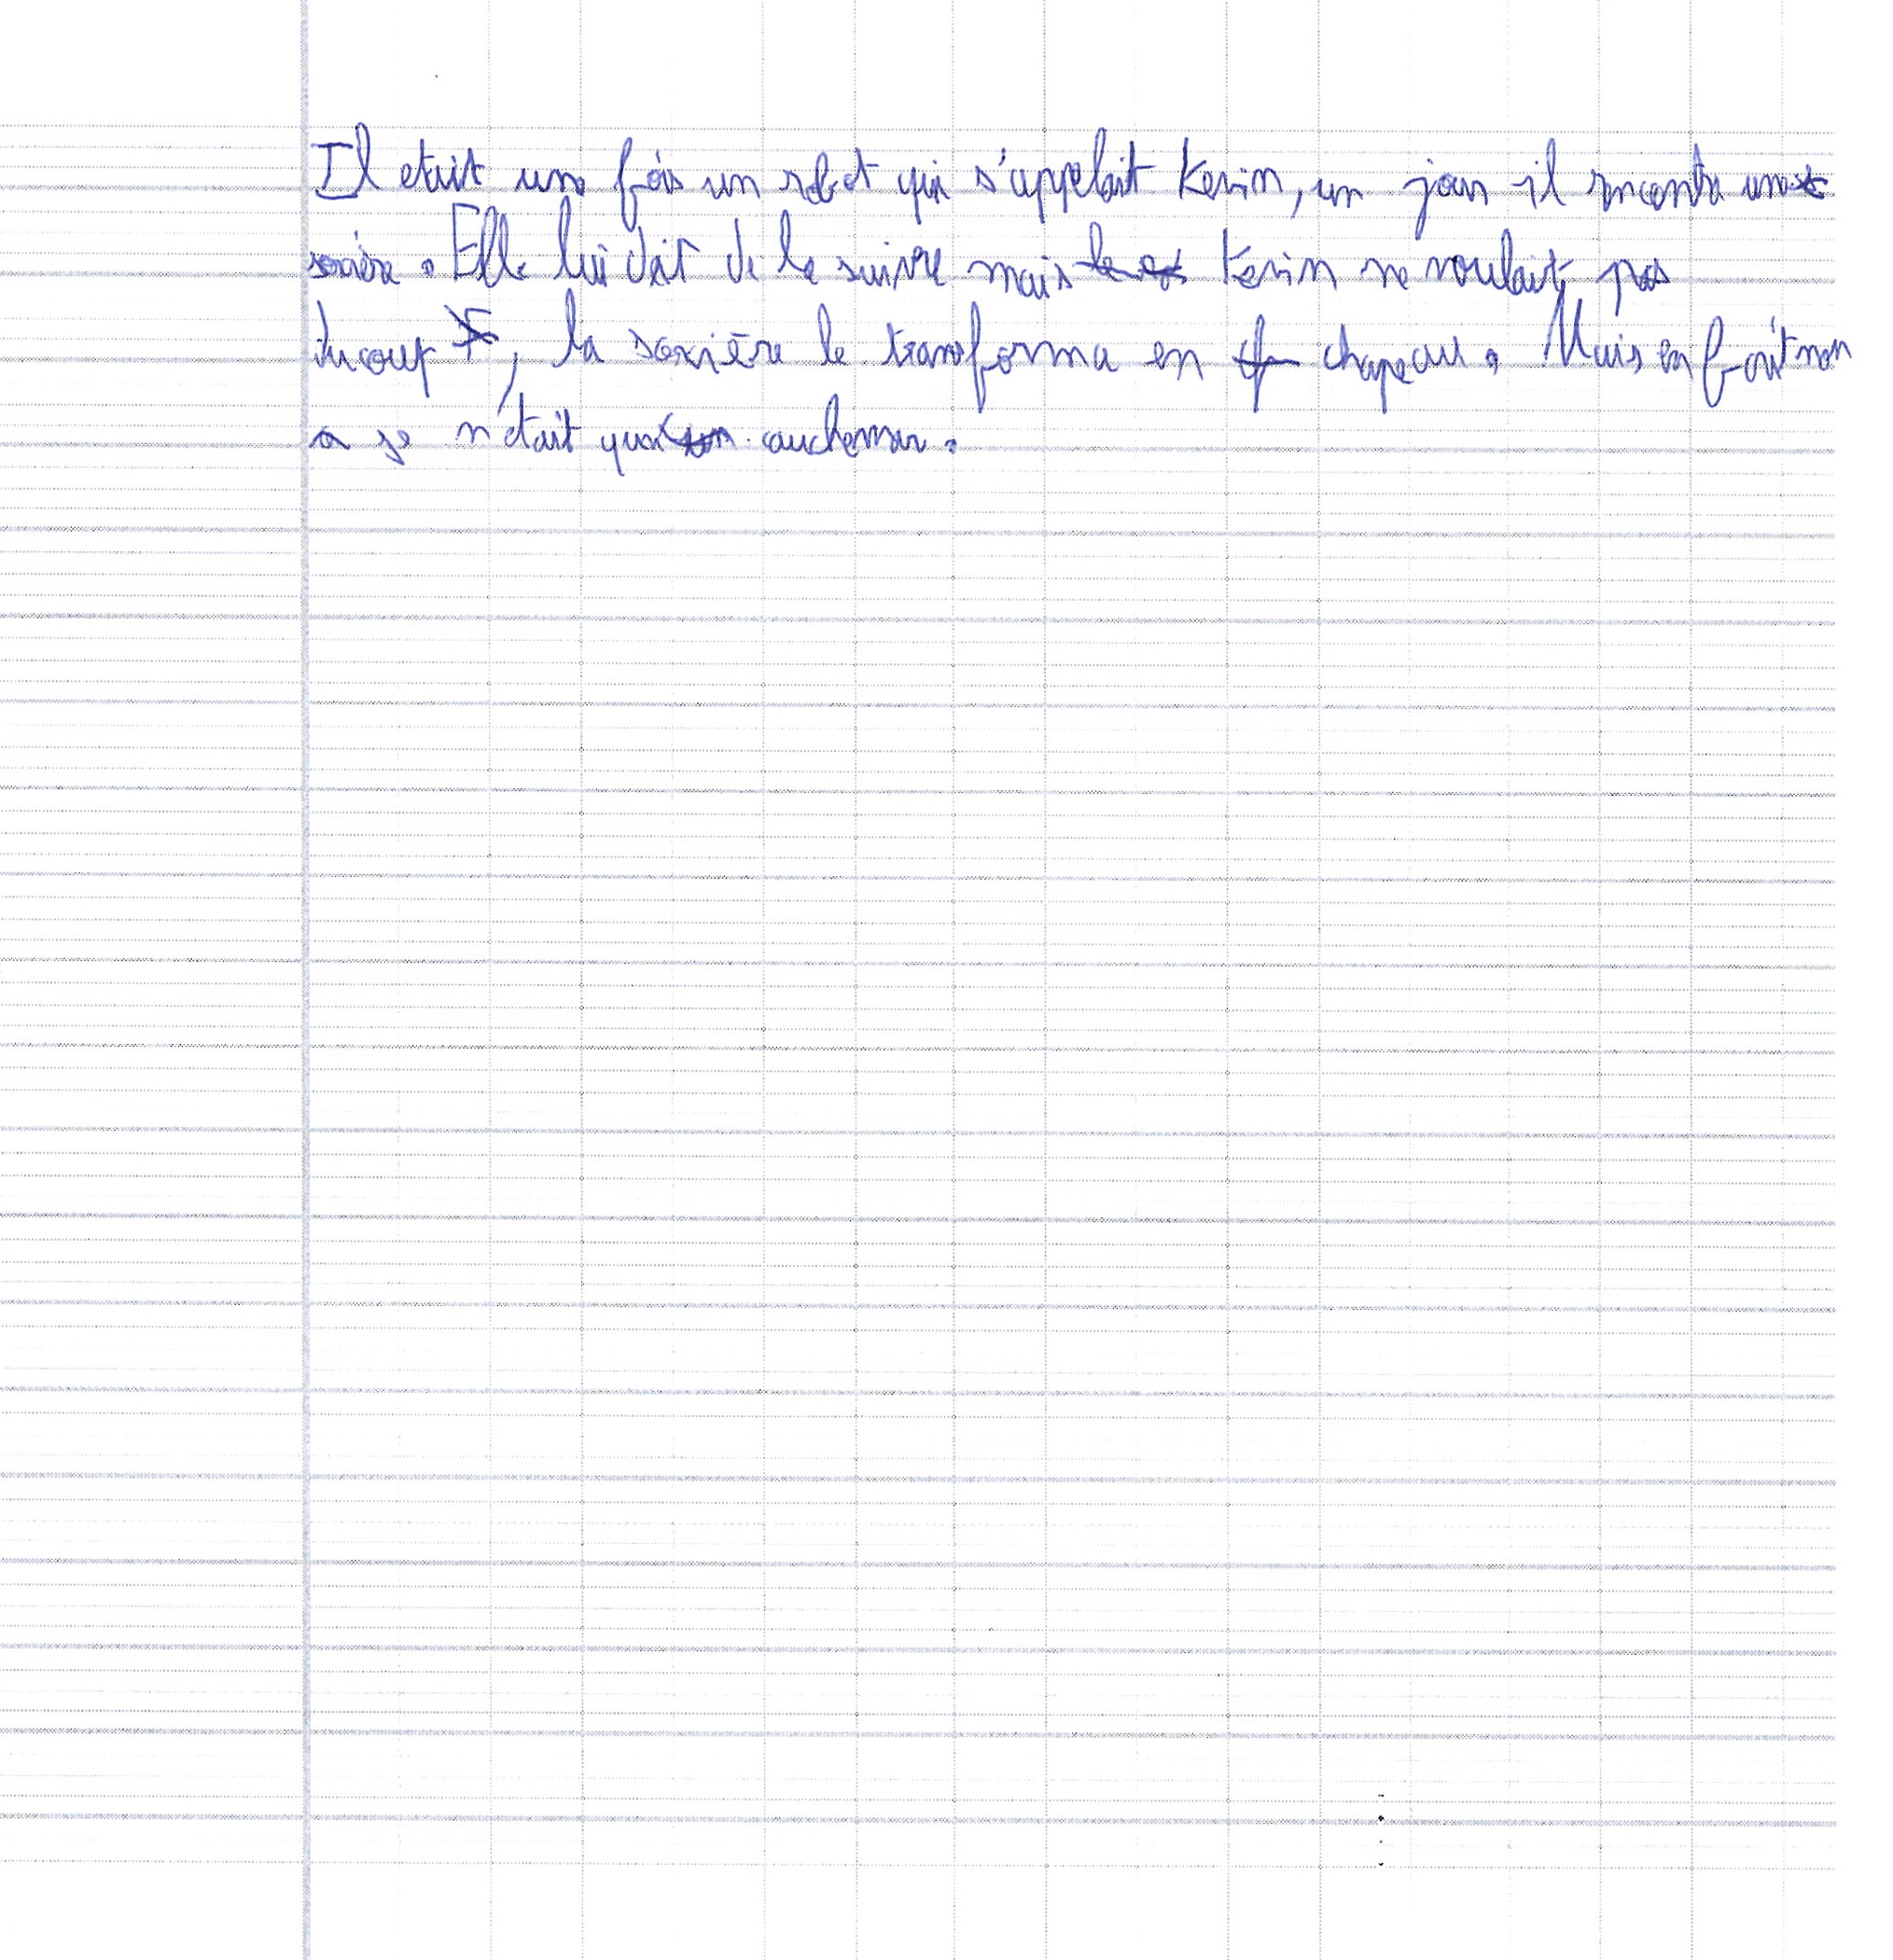 Il etait une fois un robot qui s'appelait Kevin, un jour il rencontra une
sorcière. Elle lui dit de la suivre mais Kevin ne voulait pas
ducoup, la sorxière le transforma en chapeau. Mais en fait non
se n'était qu'un cauchemar.